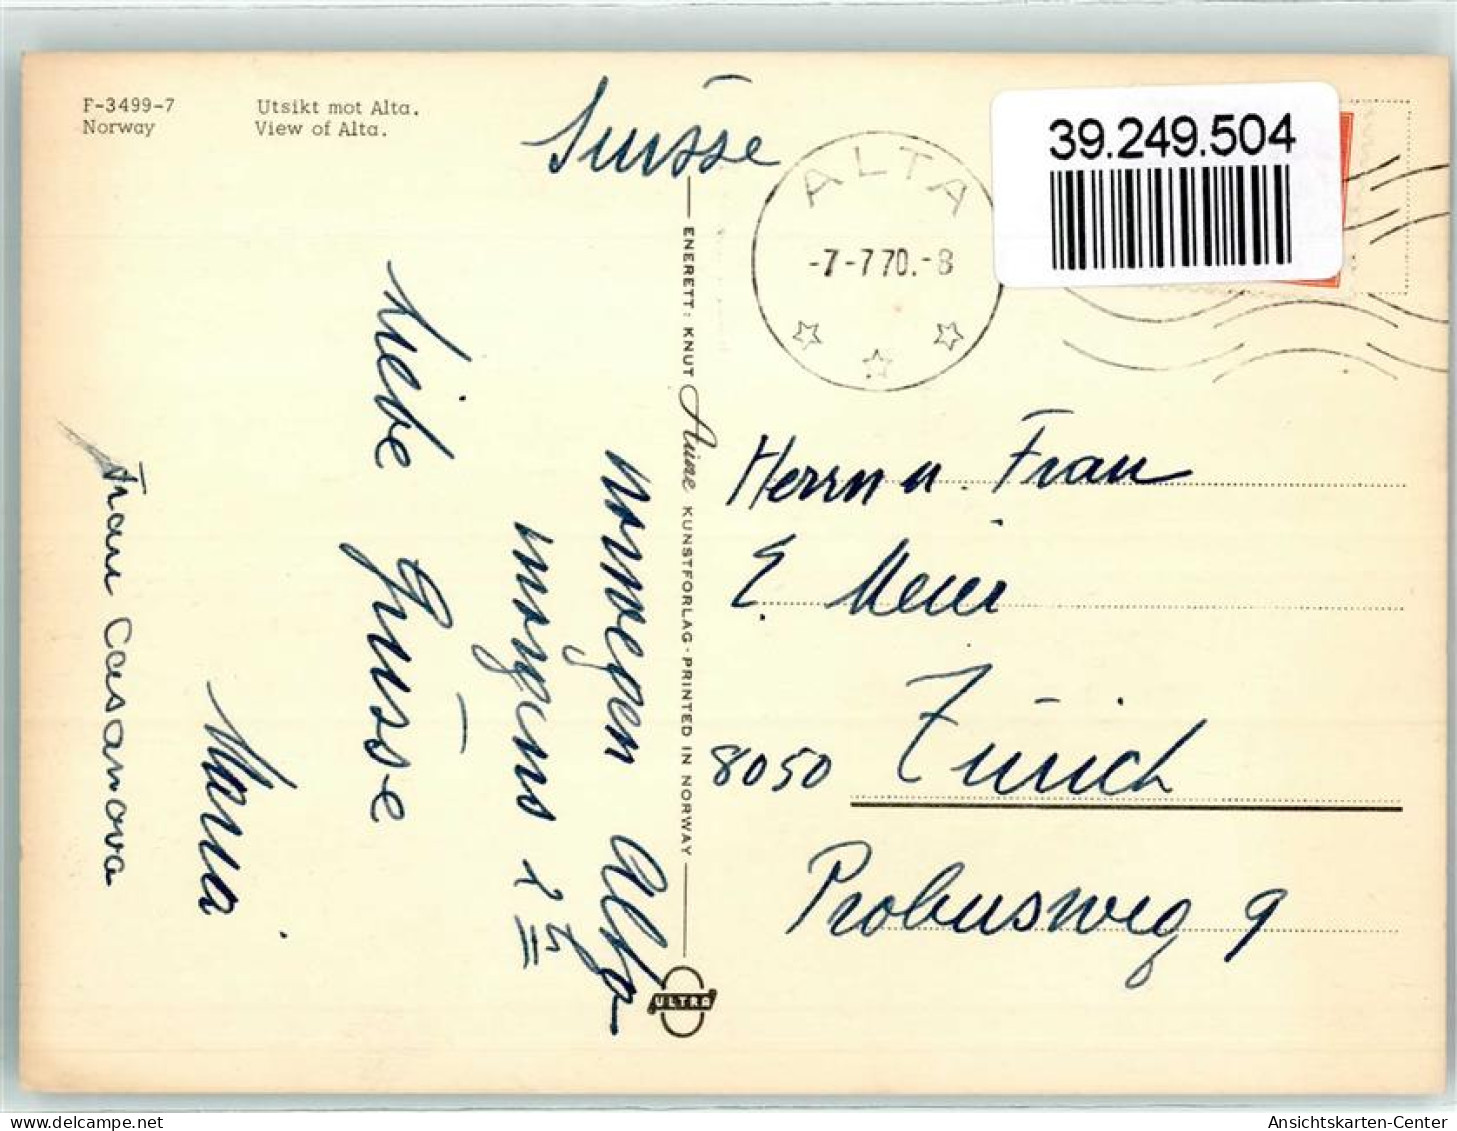 F-3499-7
Norway
Utsikt mot Alta.
View of Alta.
Suisse
ALTA
-7-770.-8
39.249.504
ENERETT: KNUT Aune KUNSTFORLAG - PRINTED IN NORWAY
ULTRA
Norwegen Alta
morgens 2 h
Liebe Grüsse
Maria
Frau Casanova
Herrn u. Frau
E. Meier
8050 Zürich
Probusweg 9
Ansichtskarten-Center